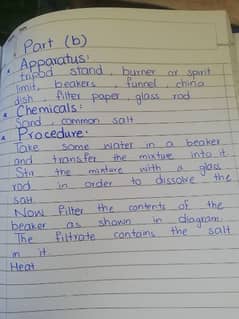 Part (b)
Apparatus:
tripod stand, burner or spirit
limit, beakers, funnel, china
dish, filter paper, glass rod
Chemicals:
Sand, common salt
Procedure:
Take some water in a beaker
and transfer the mixture into it
Stir the mixture with a glass
rod in order to dissolve the
salt
Now filter the contents of the
beaker as shown in diagram
The filtrate contains the salt
in it.
Heat